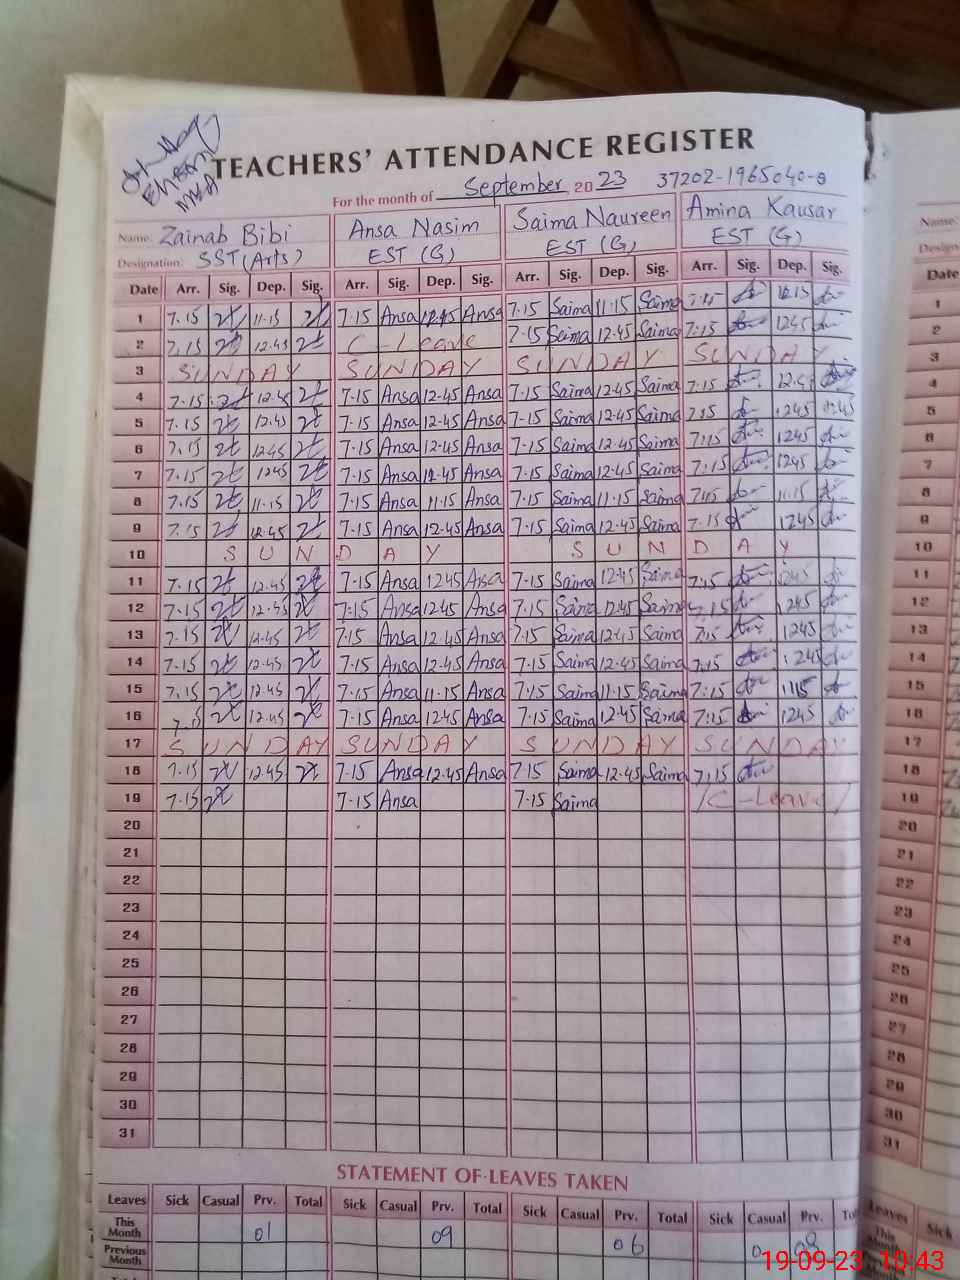 TEACHERS' ATTENDANCE REGISTER
For the month of September 2023 37202-1965040-8
Name: Zainab Bibi Ansa Nasim Saima Naureen Amina Kausar
Designation: SST (Arts) EST (G) EST (G) EST (G)
Date Arr. Sig. Dep. Sig. Arr. Sig. Dep. Sig. Arr. Sig. Dep. Sig. Arr. Sig. Dep. Sig.
1 7.15 11.15 7.15 Ansa Ansa 7.15 Saima 11.15 Saima
2 7.15 12.45 C-Leave 7.15 Saima 12.45 Saima 7:15 1245
3 SUNDAY SUNDAY SUNDAY SUNDAY
4 7.15 12.45 7.15 Ansa 12.45 Ansa 7.15 Saima 12.45 Saima 7:15
5 7.15 12.45 7.15 Ansa 12.45 Ansa 7.15 Saima 12.45 Saima 1245
6 7.15 1245 7.15 Ansa 12.45 Ansa 7.15 Saima 12.45 Saima 7:15 1245
7 7.15 1245 7.15 Ansa 12.45 Ansa 7.15 Saima 12.45 Saima 7:15 1245
8 7.15 11.15 7.15 Ansa 11.15 Ansa 7.15 Saima 11.15 Saima 11.15
9 7.15 12.45 7.15 Ansa 12.45 Ansa 7.15 Saima 12.45 Saima 7.15 1245
10 SUNDAY SUNDAY
11 7.15 12.45 7.15 Ansa 1245 Ansa 7.15 Saima 12.45 Saima 7:15 1245
12 7.15 12.45 7:15 Ansa 1245 Ansa 7.15 Saima 12.45 Saima 1245
13 7.15 12.45 7.15 Ansa 12.45 Ansa 7.15 Saima 12.45 Saima 7:15 1245
14 7.15 12.45 7.15 Ansa 12.45 Ansa 7.15 Saima 12.45 Saima 7:15 1245
15 7.15 12.45 7.15 Ansa 11.15 Ansa 7.15 Saima 11.15 Saima 7:15 1115
16 7.15 12.45 7.15 Ansa 12.45 Ansa 7.15 Saima 12.45 Saima 7:15 1245
17 SUNDAY SUNDAY SUNDAY SUNDAY
18 7.15 12.45 7.15 Ansa 12.45 Ansa 7.15 Saima 12.45 Saima 7:15
19 7.15 7.15 Ansa 7.15 Saima C-Leave
20
21
22
23
24
25
26
27
28
29
30
31
STATEMENT OF LEAVES TAKEN
Leaves Sick Casual Prv. Total Sick Casual Prv. Total Sick Casual Prv. Total Sick Casual Prv.
This Month 01 09 06
Previous Month
Name:
Date
1
2
3
4
5
6
7
8
9
10
11
12
13
14
15
16
17
18
19
20
21
22
23
24
25
26
27
28
29
30
31
Leaves Sick
This
19-09-23 10:43